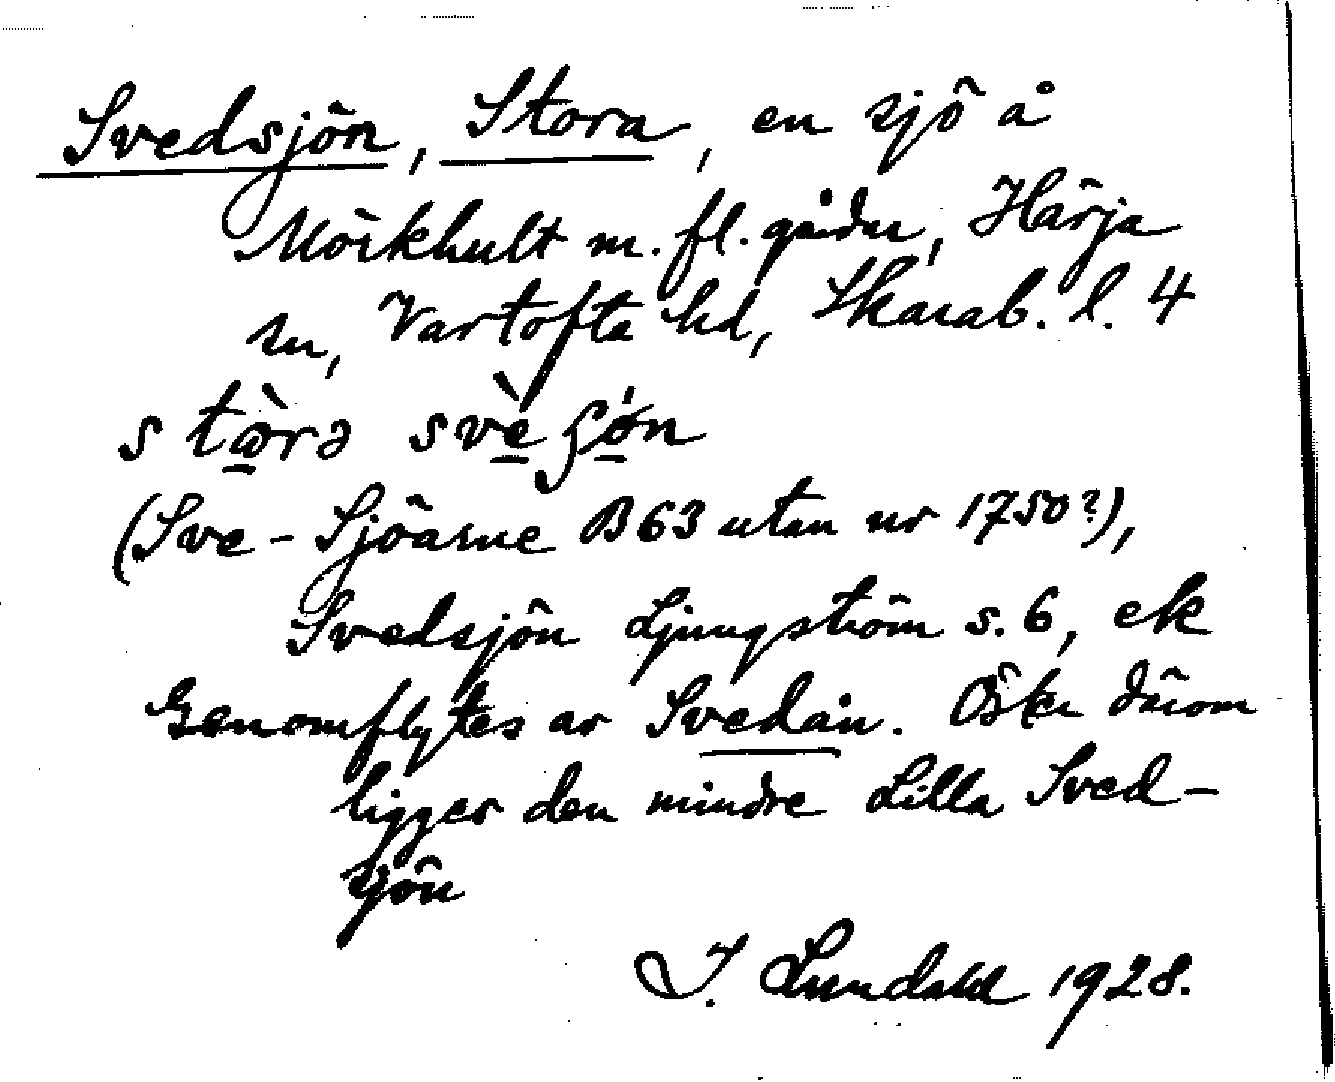 Svedsjön, Stora, en sjö å
Mörkhult m. fl. gårdar, Härja
sn, Vartofta hd, Skarab. l. 4
stɷ̀rə svèʂǿn
(Sve-Sjöarne B63 utan nr 1750?),
Svedsjön Ljungström s. 6, ek
Genomflytes av Svedån. Öster därom
ligger den mindre Lilla Sved-
sjön
I. Lundahl 1928.